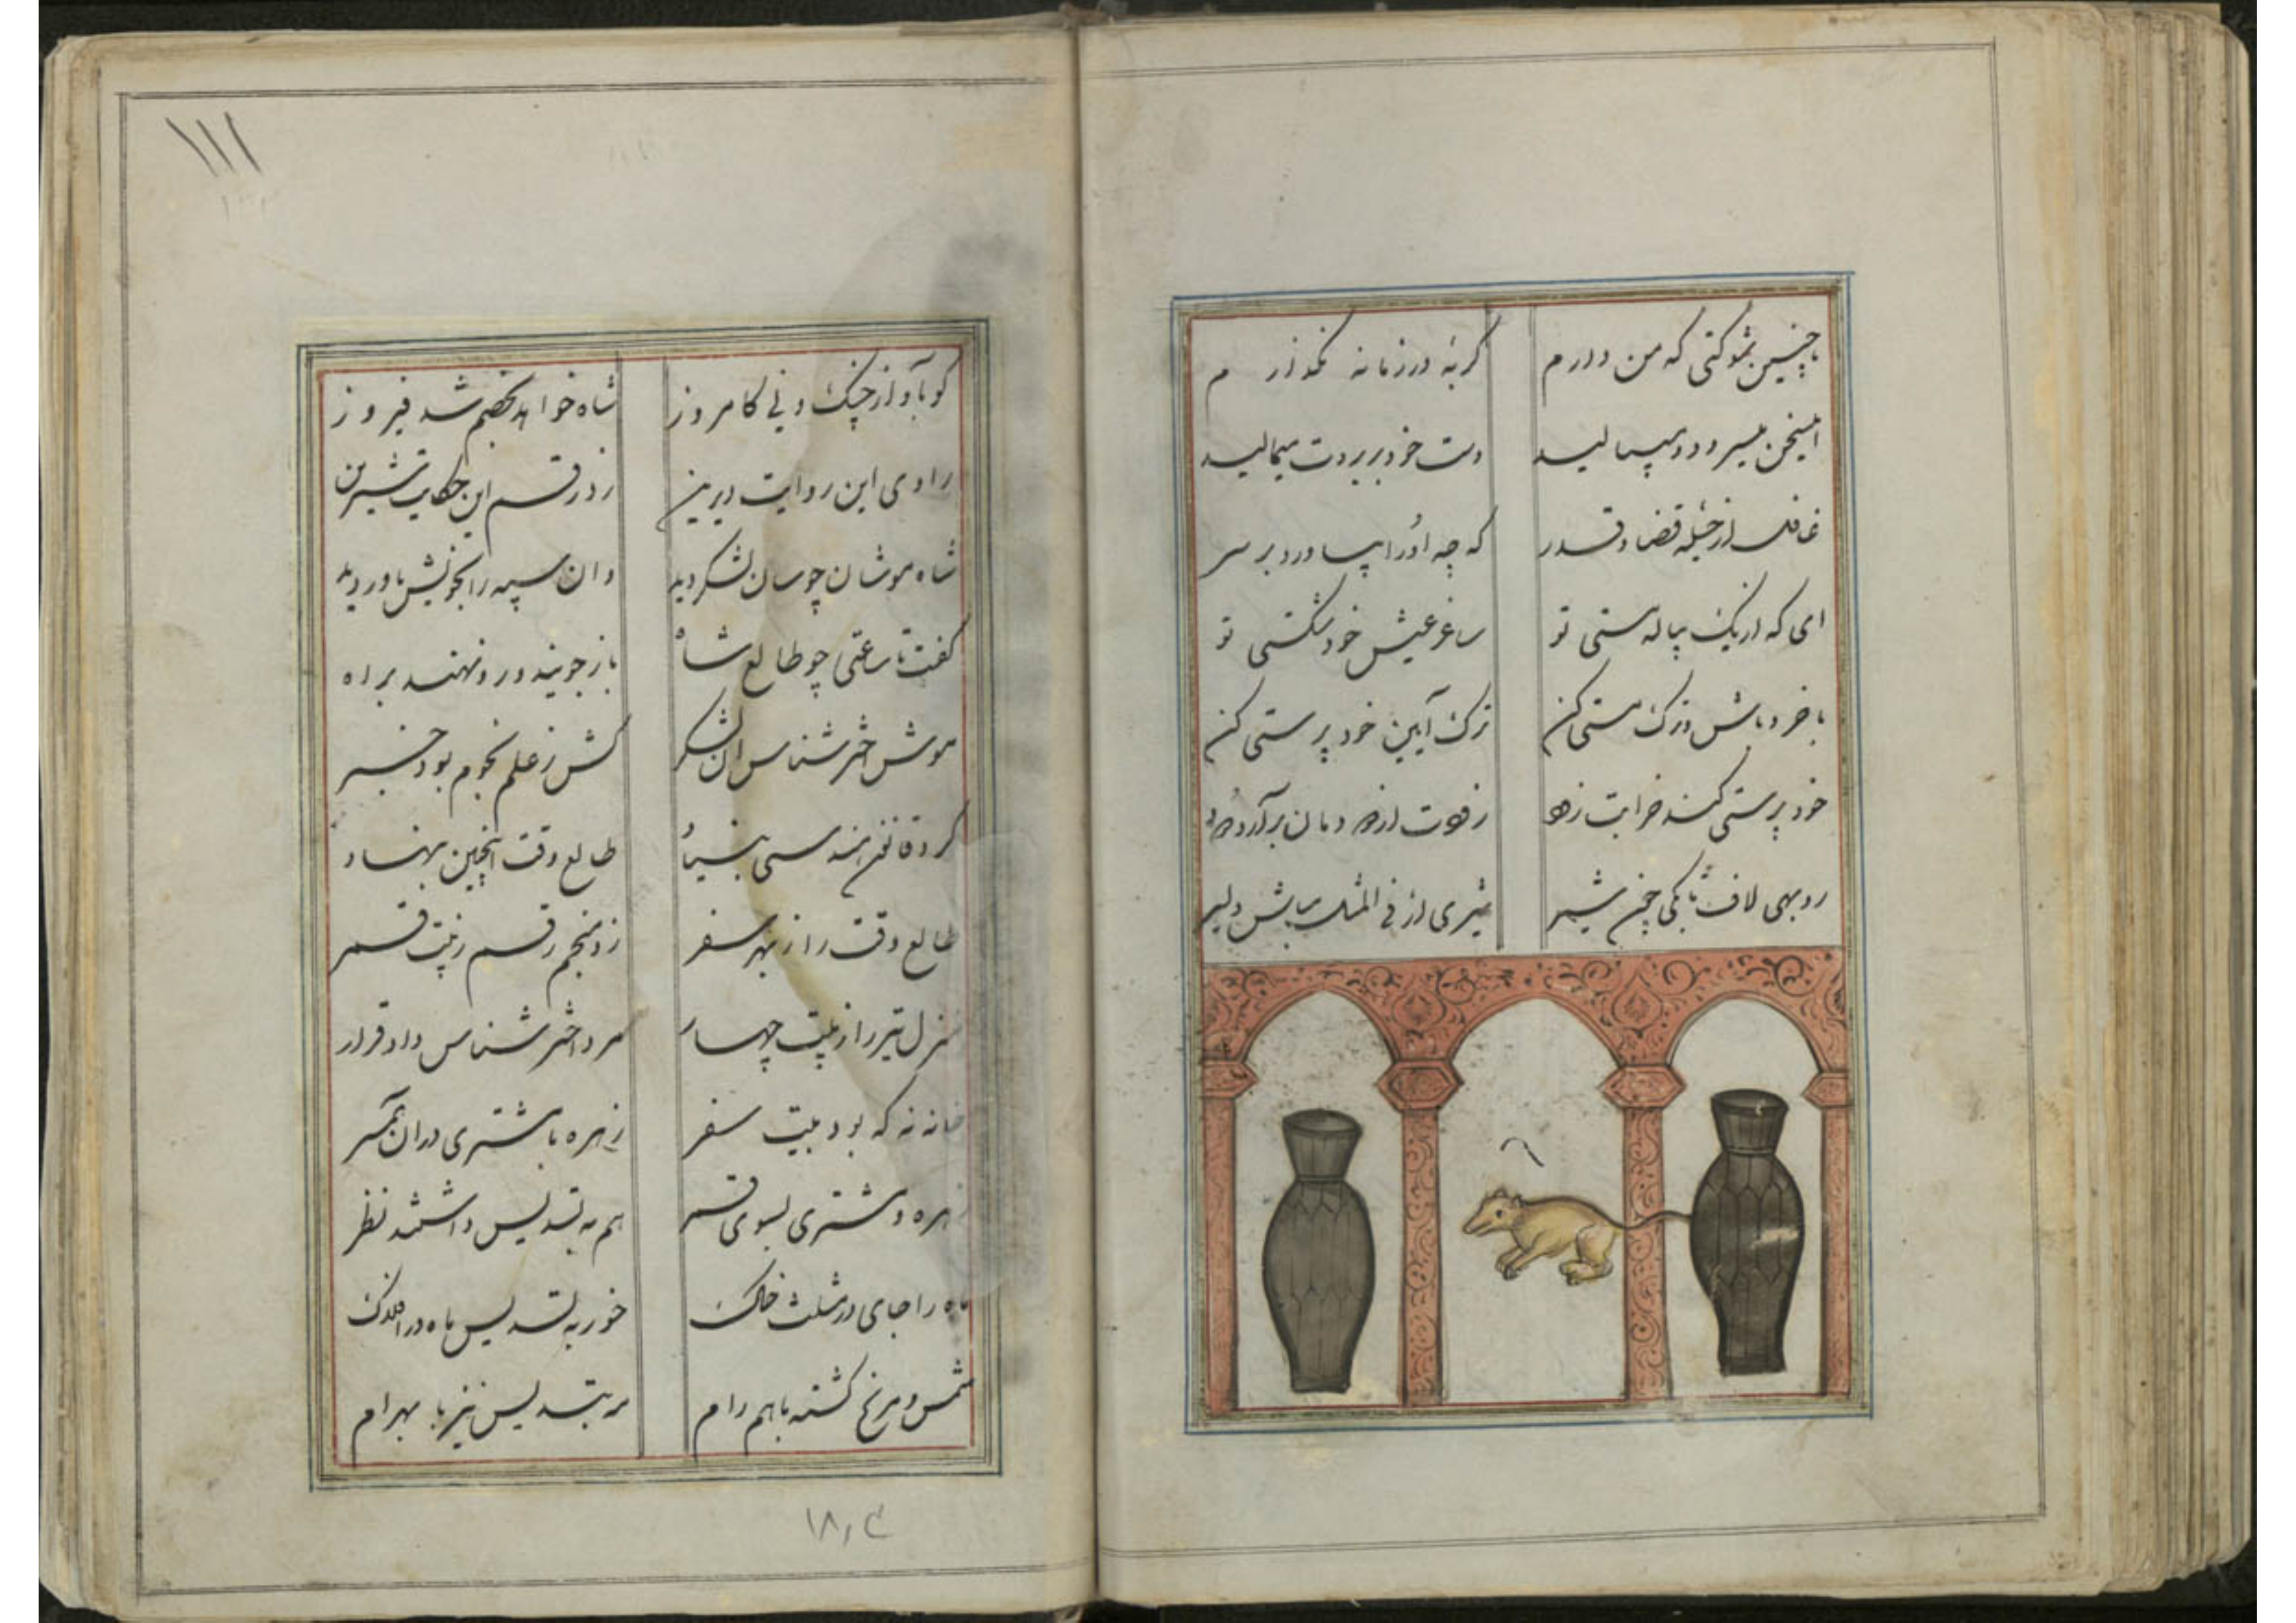 باچنین شوکتی که من دارم گربهٔ در زمانه نگذارم
اینسخن میسرود و میبالید دست خود بر بروت میمالید
غافل از حیله قضا و قدر که چه او را بیاورد بر سر
ای که از یک پیاله مستی تو ساغر عیش خود شکستی تو
باخرد باش و ترک مستی کن ترک آیین خود پرستی کن
خود پرستی کند خرابت زود
روبهی لاف تا بکی چون شیر شیری ار فی المثل مباش دلیر
۱۱۱
کو بآواز چنک و نی کامروز شاه خواهد بخصم شد فیروز
راوی این روایت دیرین زد رقم این حکایت شیرین
شاه موشان چو سان لشکر دید وان سپه را بخویش یاور دید
گفت تا ساعتی چو طالع شاه باز جویند و رو نهند براه
موش اخترشناس ان لشکر کش ز علم نجوم بود خبر
کرد قانون هندسی بنیاد طالع وقت اینچنین بنهاد
طالع وقت را ز بهر سفر زد منجم رقم ز بیت قمر
منزل تیر را ز بیت چهار مرد اخترشناس داد قرار
خانه نه که بود بیت سفر زهره با مشتری دران همسر
زهره و مشتری بسوی قمر هم به تسدیس داشتند نظر
ماه را جای در مثلث خاک خور به تسدیس ماه در افلاک
شمس و مریخ گشته باهم رام مه بتسدیس نیز با بهرام